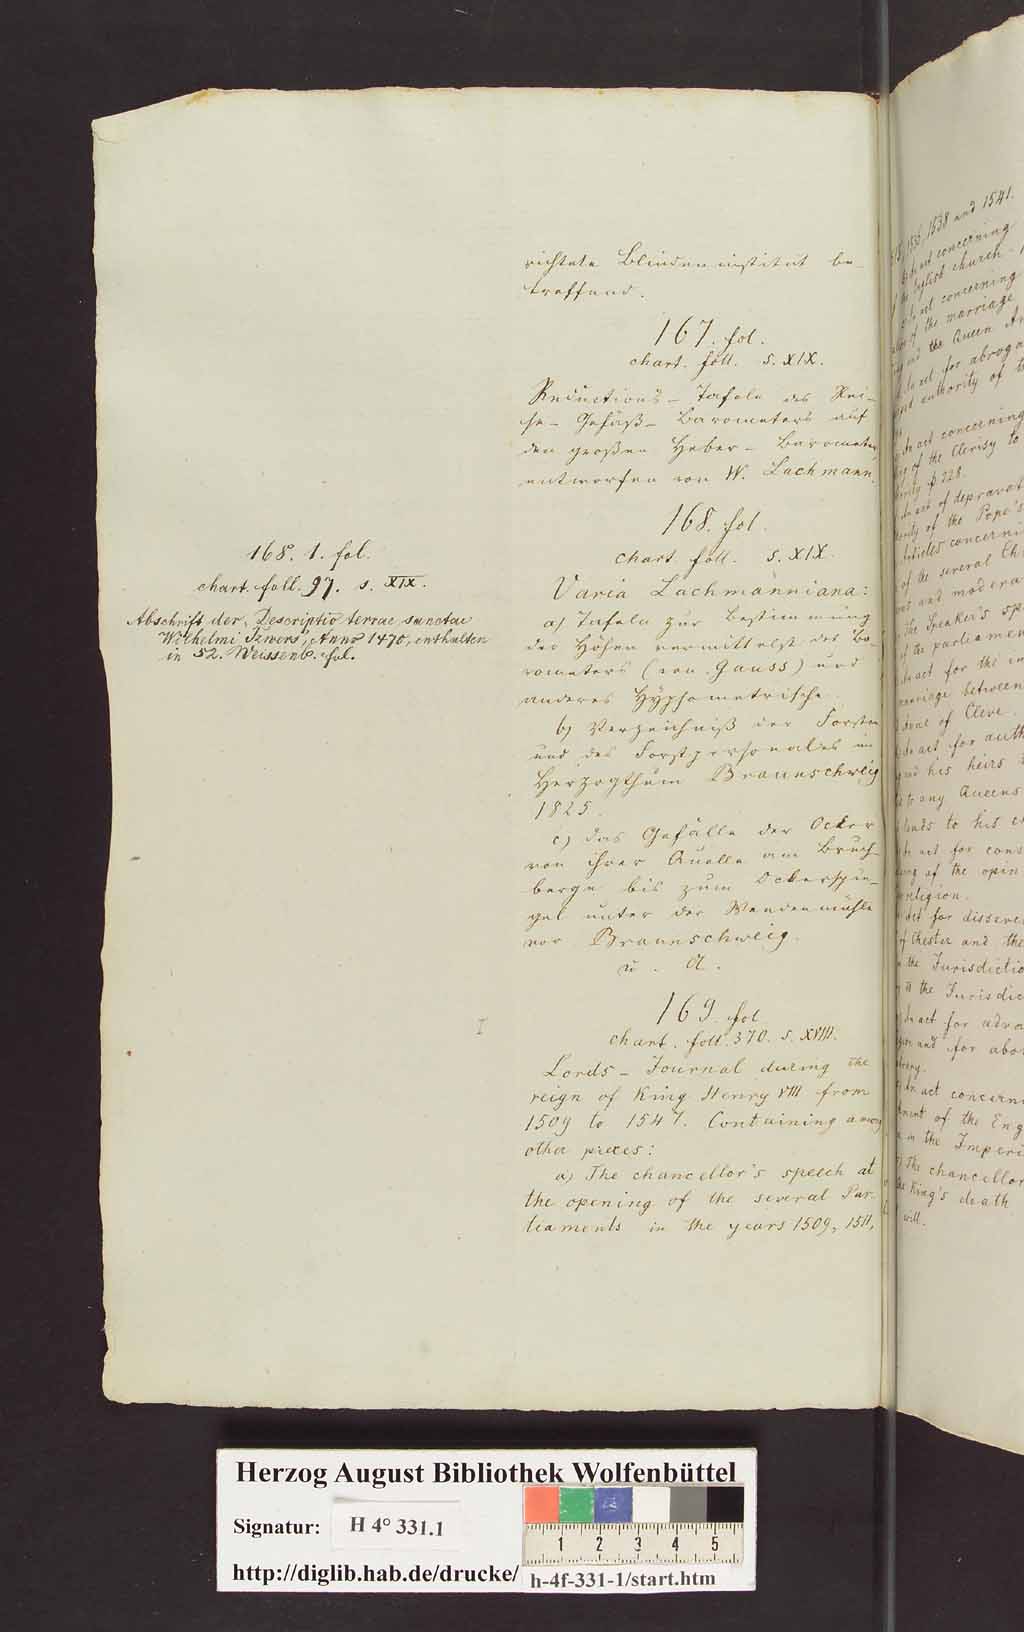 richtete Blindeninstitut be-
treffend.
167. fol.
chart. foll. s. XIX.
Reductions-Tafeln des Rei-
se-Gefäß-Barometers auf
den großen Heber-Barometer
entworfen von W. Lachmann.
168. fol.
chart. foll. s. XIX.
Varia Lachmanniana:
a) Tafeln zur Bestimmung
der Höhen vermittelst des Ba-
rometers (von Gauss) und
anderes Hypsometrische.
b) Verzeichniß der Forsten
und des Forstpersonales im
Herzogthum Braunschweig
1825.
c) das Gefälle der Ocker
von ihrer Quelle am Bruch-
berge bis zum Ockerspie-
gel unter der Wendenmühle
vor Braunschweig.
u. A.
169. fol.
chart. foll. 370. s. XVIII.
Lords-Journal during the
reign of King Henry VIII from
1509 to 1547. Containing among
other pieces:
a) The chancellor's speech at
the opening of the several Par-
liaments in the years 1509, 1511,
168. 1. fol.
chart. foll. 97. s. XIX.
Abschrift der "Descriptio terrae sanctae
Wilhelmi Tzwers", Anno 1470, enthalten
in 52. Weissenb. fol.
1536, 1538 and 1541.
act concerning
English church
act concerning
of the marriage
and the Queen
act for abroga
authority of
act concerning
of the Clerisy to
p 228.
act of depravat
of the Pope's
Articles concerni
of the several Ch
and modera
the Speaker's sp
of the parliamen
act for the
marriage between
Anne of Cleve.
act for auth
and his heirs
to any Queens
lands to his
act for cons
of the opin
religion.
act for dissever
of Chester and the
the Jurisdictio
to the Jurisdic
act for adva
and for abo
An act concerni
of the Eng
in the Imperi
The chancellor
the King's death
will.
Herzog August Bibliothek Wolfenbüttel
Signatur: H 4° 331.1
1 2 3 4 5
http://diglib.hab.de/drucke/ h-4f-331-1/start.htm